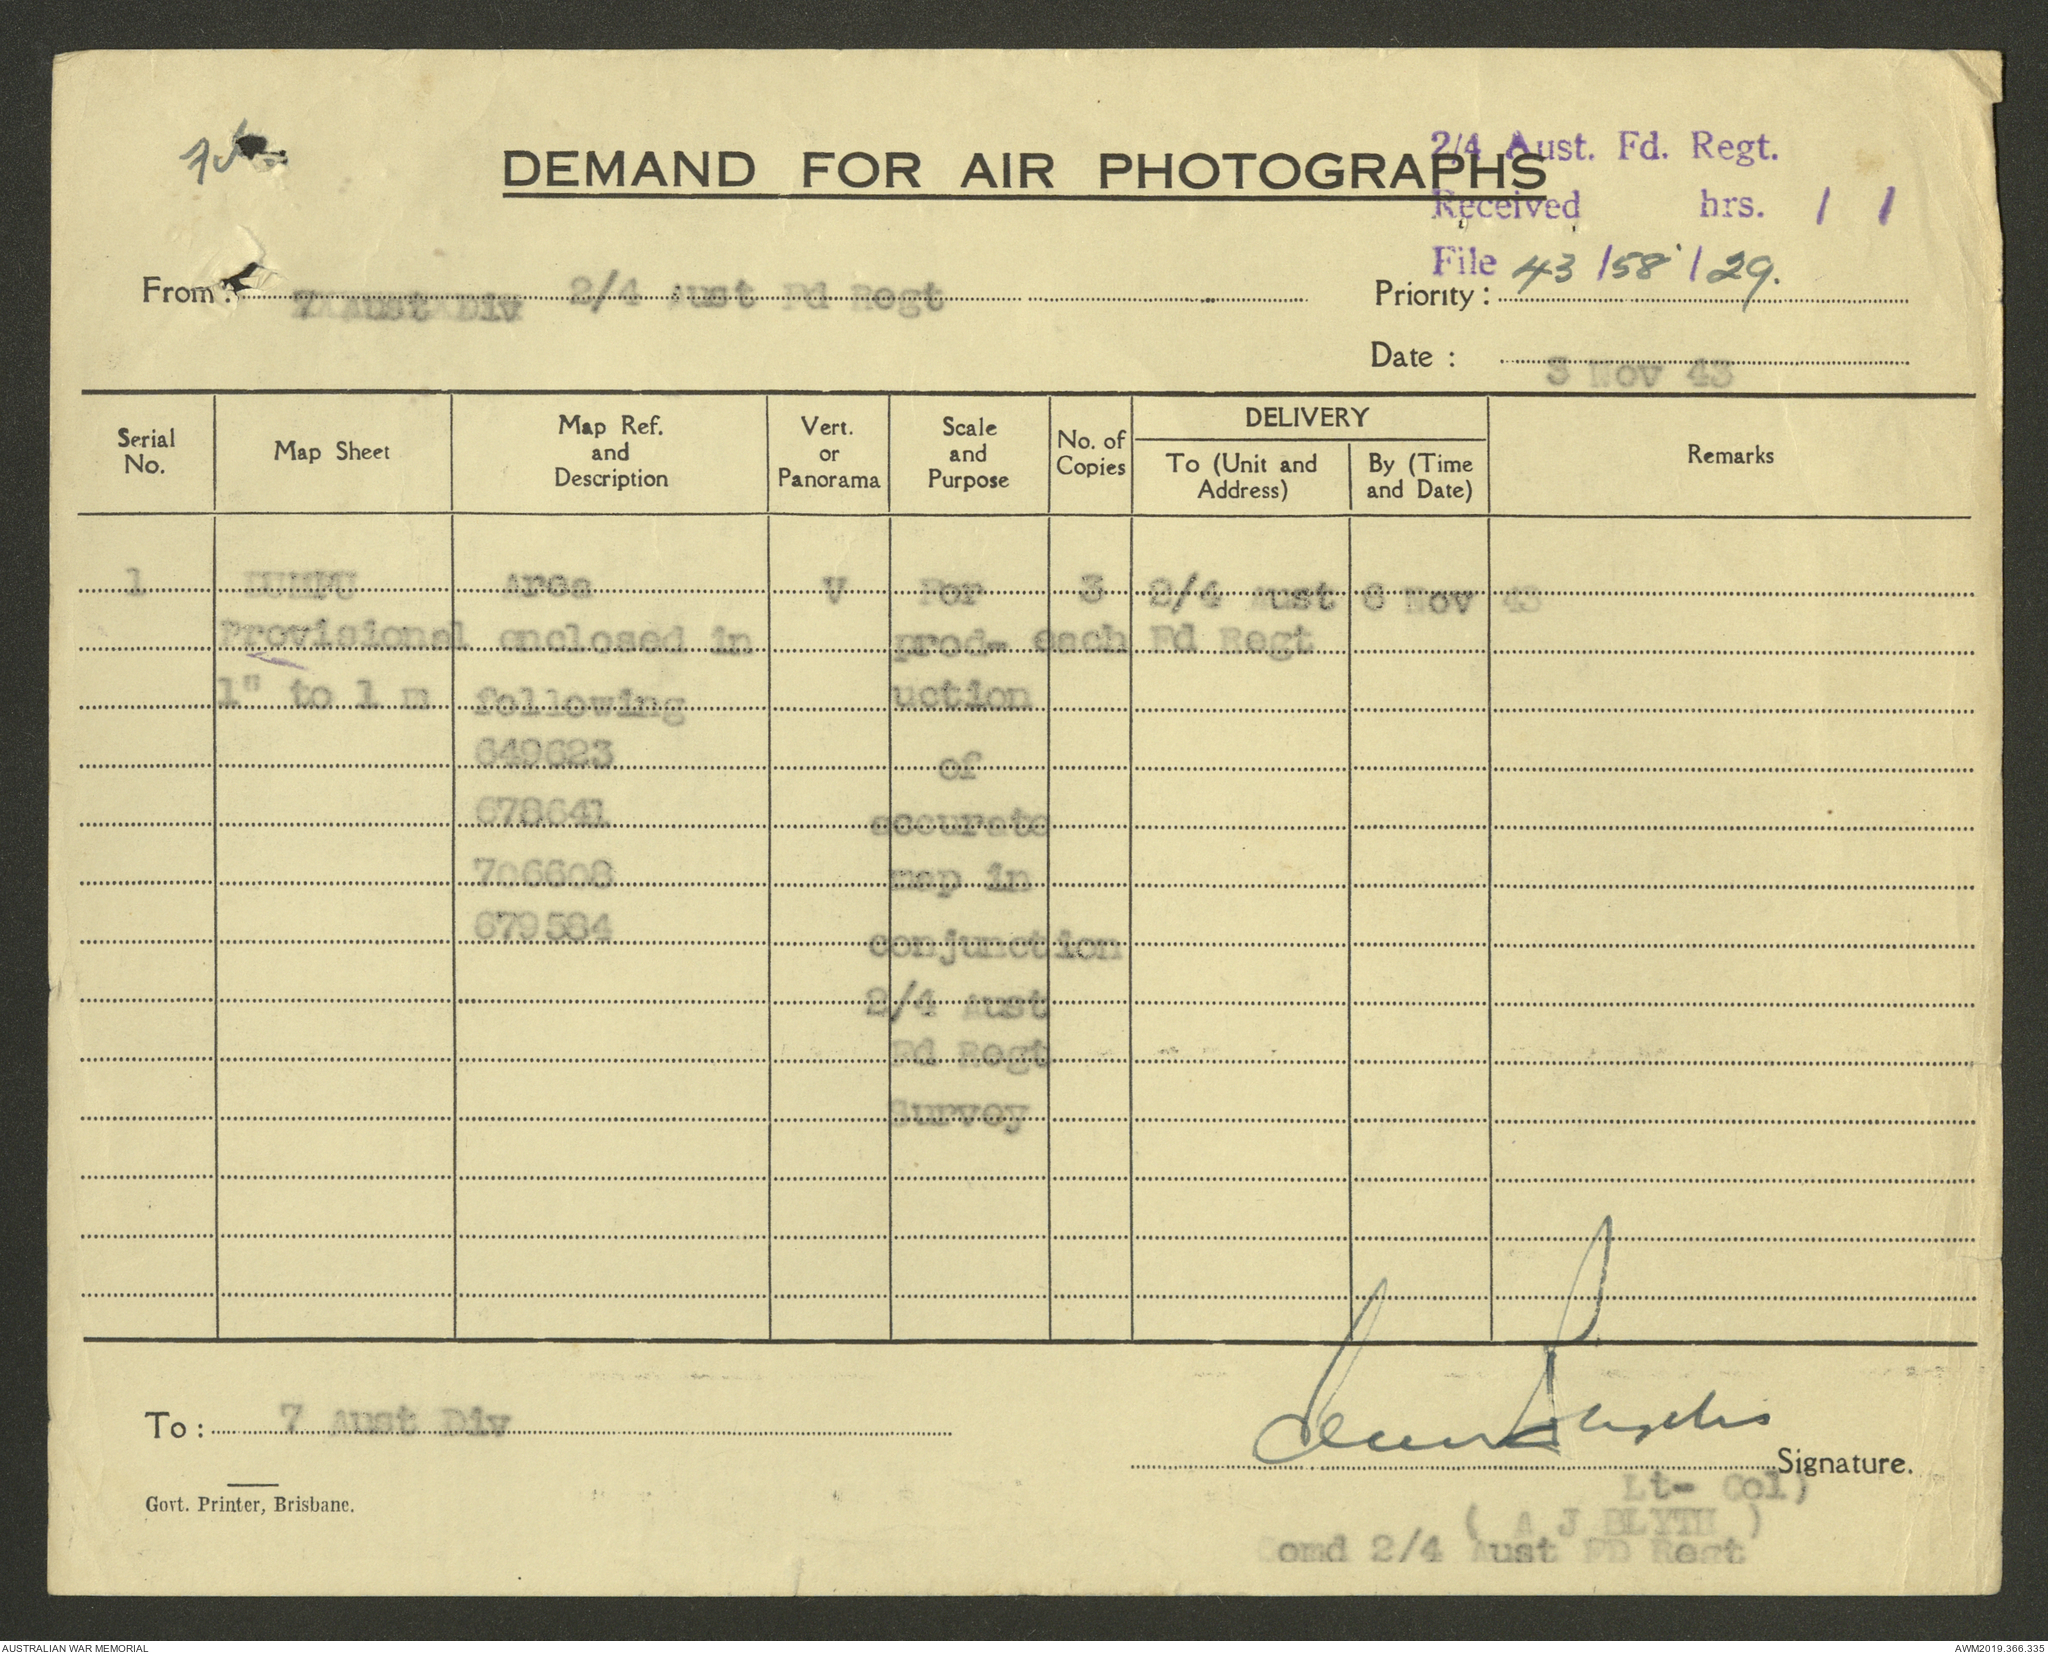 2/4 Aust. Fd. Regt.
DEMAND FOR AIR PHOTOGRAPHS
Received hrs. / /
File 43/58/29.
From : 7 Aust Div 2/4 Aust Fd Regt
Priority :
Date : 3 Nov 43
Serial No.
Map Sheet
Map Ref. and Description
Vert. or Panorama
Scale and Purpose
No. of Copies
DELIVERY
To (Unit and Address)
By (Time and Date)
Remarks
1 DUMPU Area V For 3 2/4 Aust 6 Nov 43
Provisional enclosed in prod- each Fd Regt
1" to 1 m following uction
649623 of
678641 accurate
706608 map in
679584 conjunction
2/4 Aust
Fd Regt
Survey
To : 7 Aust Div
Signature.
Govt. Printer, Brisbane.
Lt- Col)
( A J BLYTH )
Comd 2/4 Aust FD Regt
AUSTRALIAN WAR MEMORIAL
AWM2019.366.335